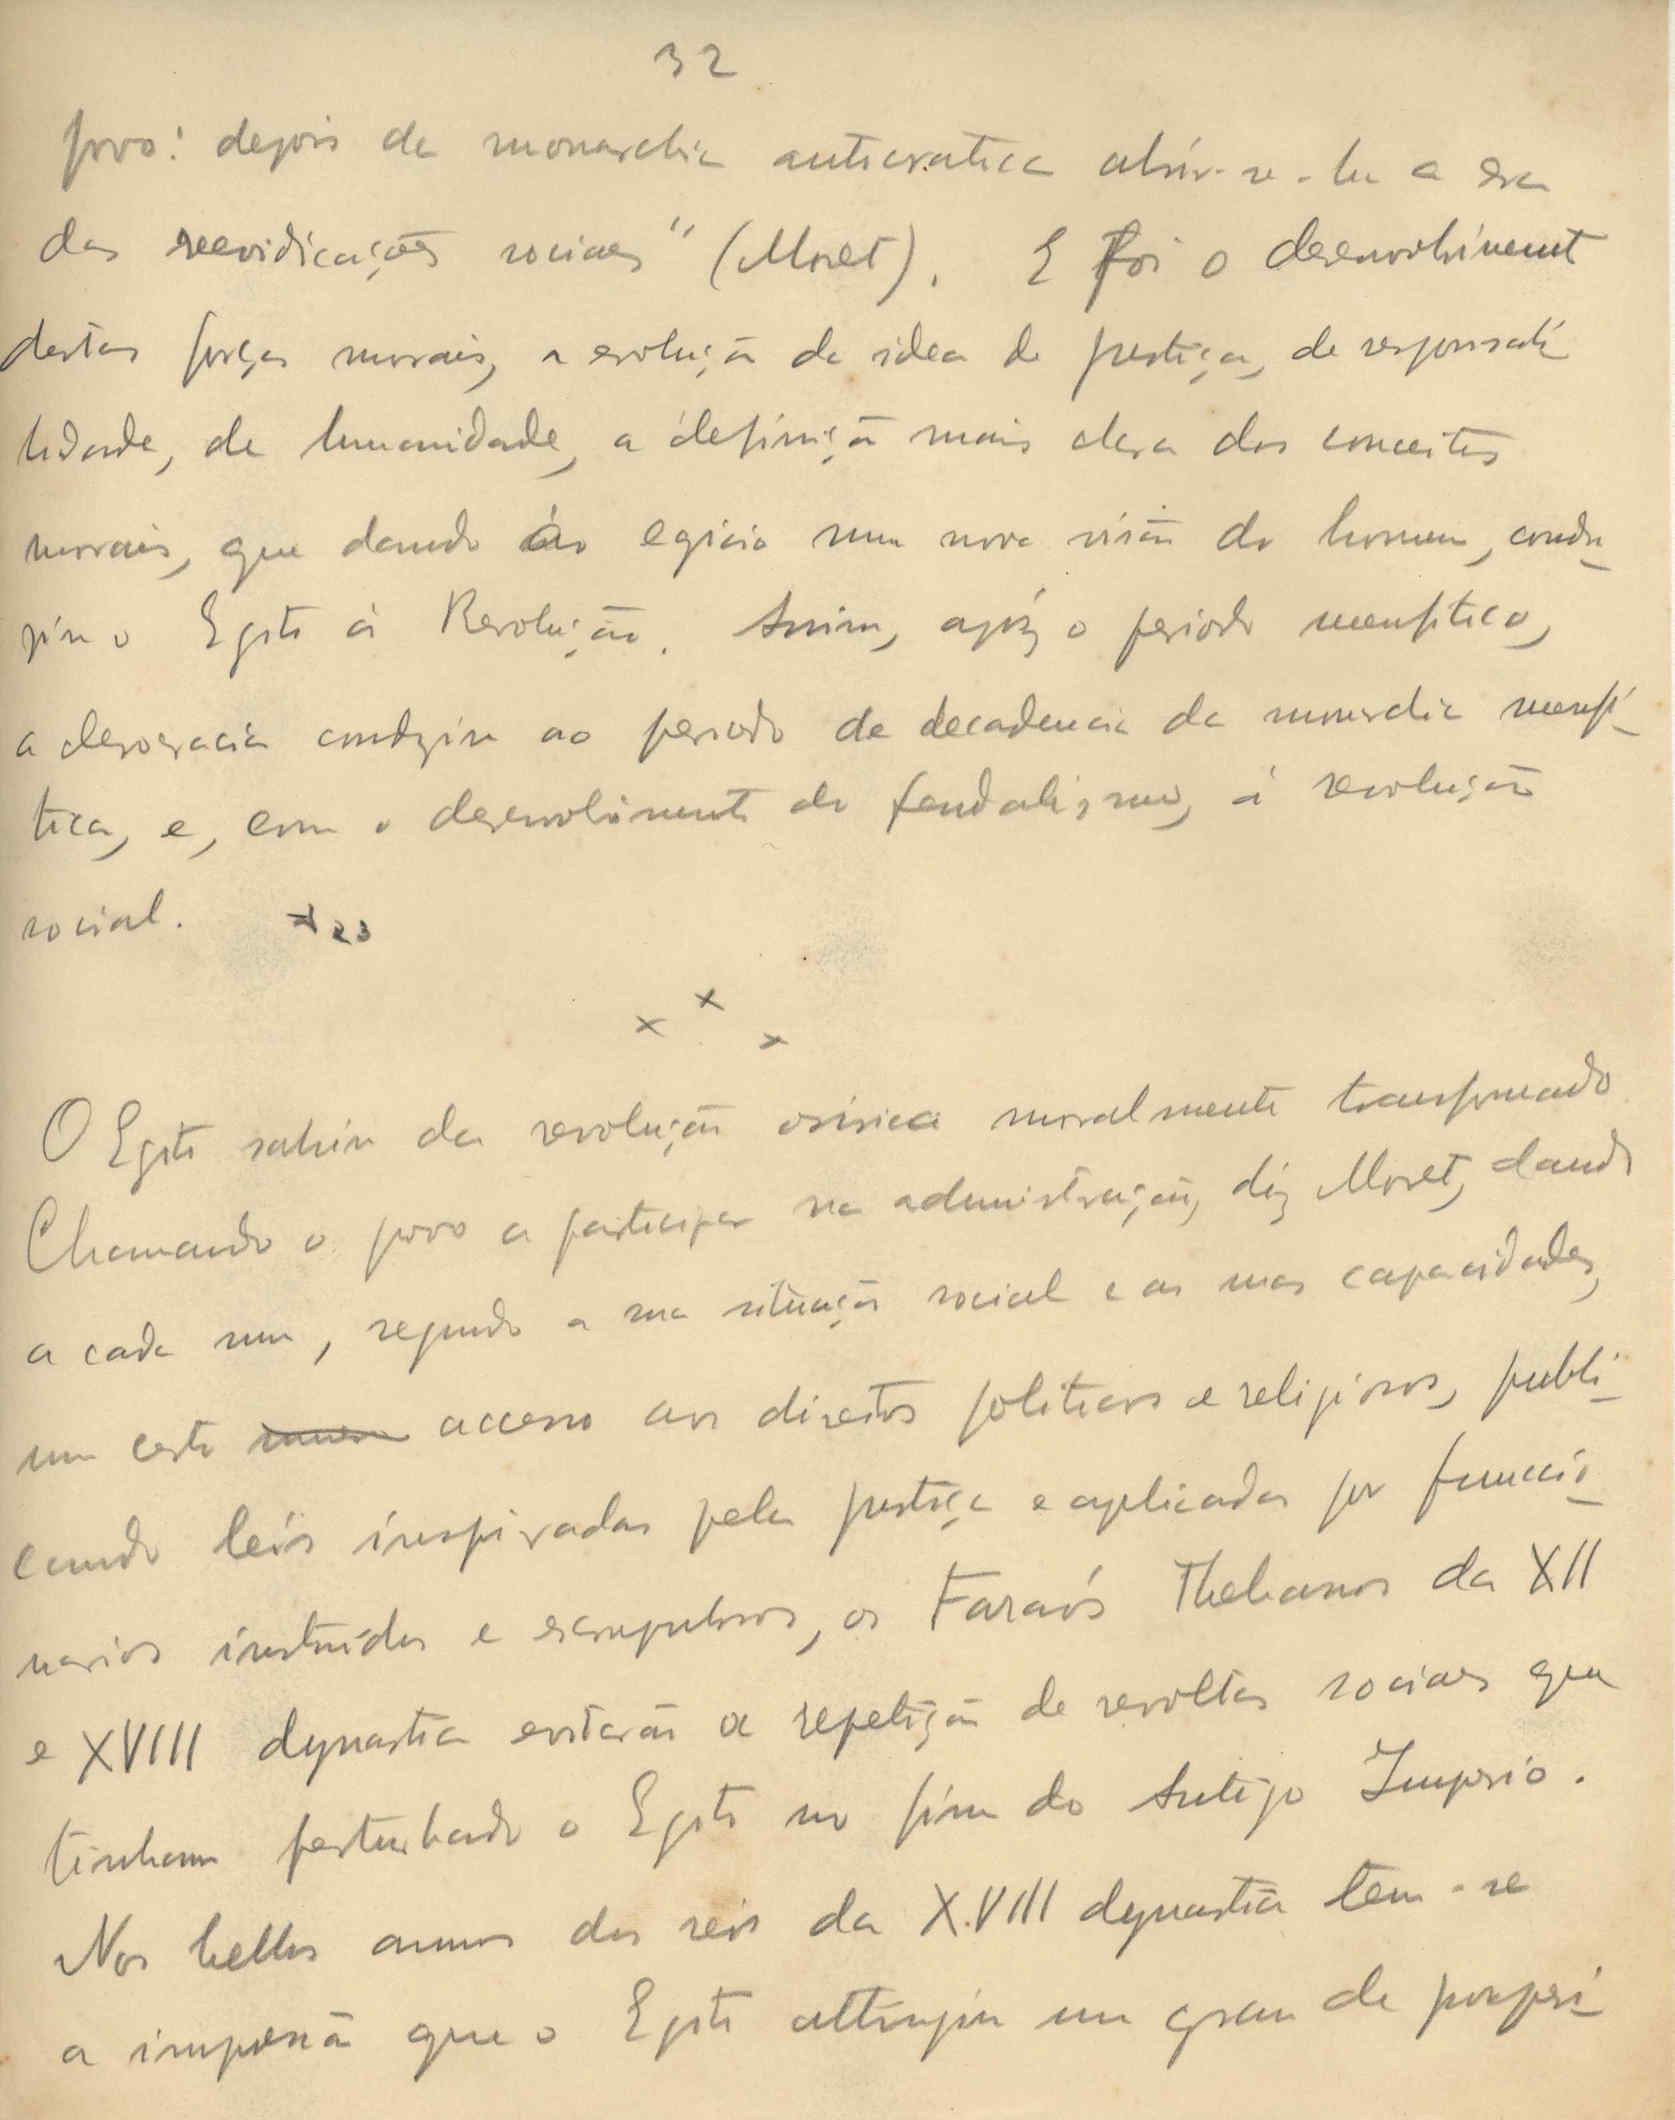 32
povo: depois da monarchia autocratica abrir-se-ha a era
das reevidicações sociaes" (Moret). E foi o desenvolviment
destas forças morais, a evolução da idea de justiça, de responsabi
lidade, de humanidade, a definição mais clara dos conceitos
morais, que dando ao egicio uma nova visão do homem, condu-
ziu o Egito á Revolução. Assim, após o periodo menfitico,
a democracia conduziu ao periodo de decadencia da monarchia menfi-
tica, e, com o desenvolvimento do feudalismo, á revolução
social. 23
x x x
O Egito sahiu da revolução osirica moralmente transformado
Chamando o povo a participar na administração, diz Moret, dando
a cada um, segundo a sua situação social e as suas capacidades,
um certo accesso aos direitos politicos e religiosos, publi-
cando leis inspiradas pela justiça e aplicadas por funccio-
narios instruidos e escrupulosos, os Faraós Thebanos da XII
e XVIII dynastia evitarão a repetição de revoltas sociaes que
tinham perturbado o Egito no fim do Antigo Imperio.
Nos bellos annos dos reis da XVIII dynastia tem-se
a impressão que o Egito attingiu um grau de prosperi-